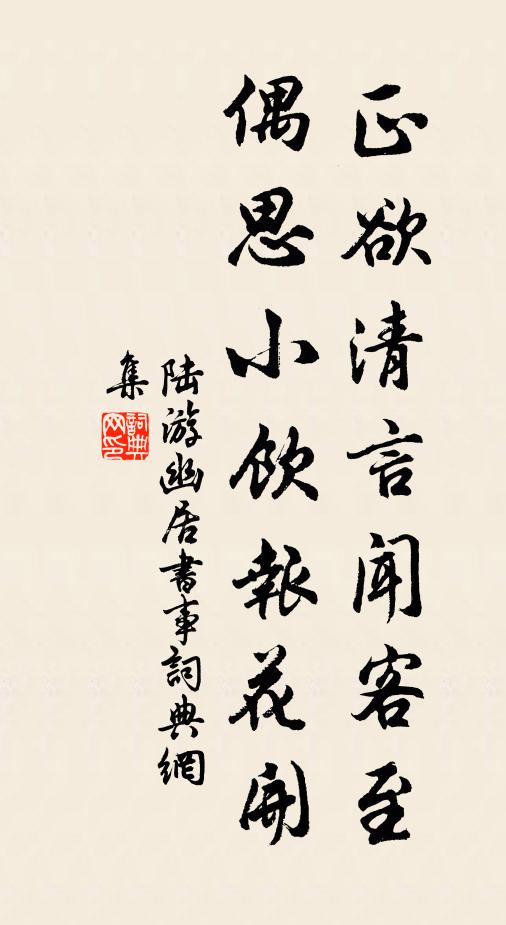 正欲清言闻客至
偶思小饮報花開
陆游幽居書事詞典網
集
詞典
网印